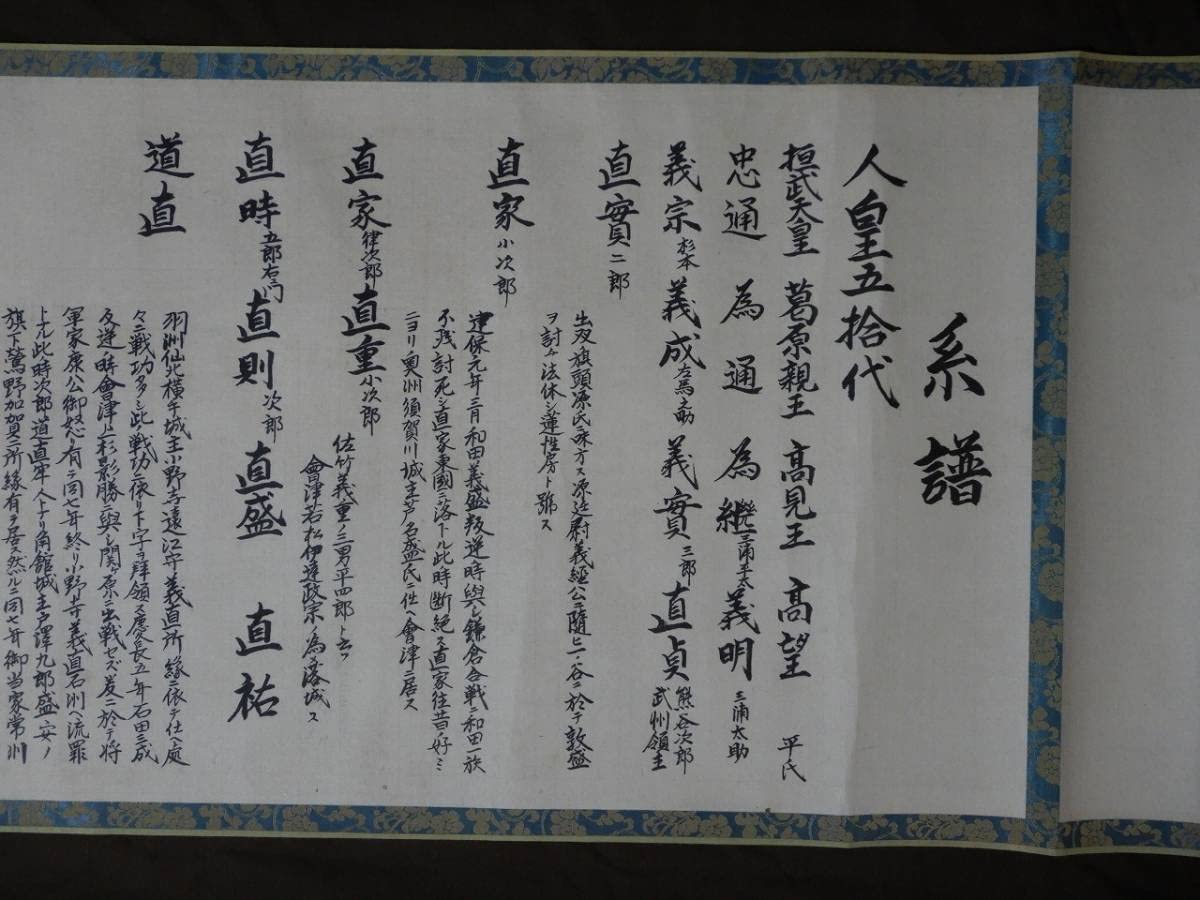 系譜
人皇五拾代
桓武天皇 葛原親王 高見王 高望 平氏
忠通 為通 為継 三浦平太 義明 三浦大助
義宗 杉本 義成 左馬助 義實 三郎 直貞 熊谷次郎 武州領主
直實 二郎
出双旗頭源氏ニ味方ス源廷尉義經公ニ隨ヒ一ノ谷ニ於テ敦盛
ヲ討ケ法休シ蓮性房ト號ス
直家 小次郎
建保元年三月和田義盛叛逆時與シ鎌倉合戦ニ和田一族
不残討死シ直家東國ニ落トル此時断絶ス直家往昔ノ好ミ
ニヨリ奥洲須賀川城主芦名盛氏ニ仕ヘ會津ニ居ス
直家 律次郎 直重 小次郎
佐竹義重ノ三男平四郎ト云フ
會津若松伊達政宗ノ為落城ス
直時 五郎右門 直則 次郎 直盛 直祐
道直
羽洲仙北横手城主小野寺遠江守義直所縁ニ依テ仕ヘ處
々ニ戦功多シ此ノ戦功ニ依リ下字ヲ拝領ス慶長五年石田三成
反逆時會津上杉影勝ニ與シ関ヶ原ニ出戦セズ爰ニ於テ将
軍家康公御怒ノ有テ同七年終リ小野寺義直石洲ヘ流罪
トナル此時次郎道直牢人トナリ角館城主戸澤九郎盛安ノ
旗下鶯野加賀ニ所縁有ヲ居ス然ルニ同七年御当家常州